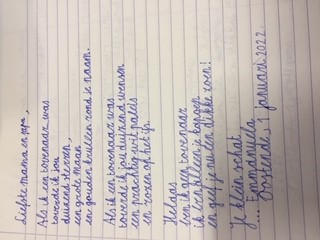 Liefste mama en papa,
Als ik een tovenaar was
toverde ik jou
duizend sterren,
een grote maan
en gouden krullen rond je naam.
Als ik een tovenaar was
toverde ik jou duizend wensen
een prachtig wit paleis
en rozen op het ijs.
Helaas
ben ik geen tovenaar
ik kan alleen je kapoen
en geef je nu een dikke zoen!
Je klein schat
... Emmanuella
Oostende, 1 januari 2022